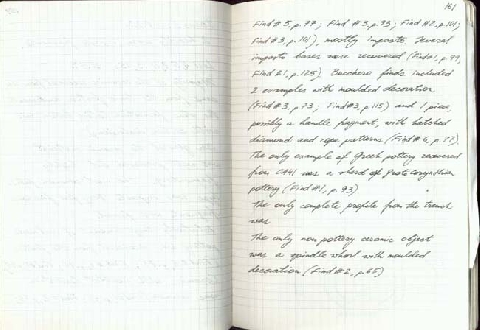 161
Find # 5, p. 77; Find # 3, p. 93; Find # 2, p. 114;
Find # 3, p. 141), mostly impasto. Several
impasto bases were recovered (Find 1, p. 79,
Find 21, p. 125). Bucchero finds included
2 examples with moulded decoration
(Find # 3, p. 73, Find # 3, p. 115) and 1 piece,
possibly a handle fragment, with hatched
diamond and rope patterns (Find # 4, p. 17).
The only example of Greek pottery recovered
from CA41 was a sherd of protocorinthian
pottery (Find # 1, p. 93)
The only complete profile from the trench
was
The only non pottery ceramic object
was a spindle whorl with moulded
decoration (Find # 2, p. 65)